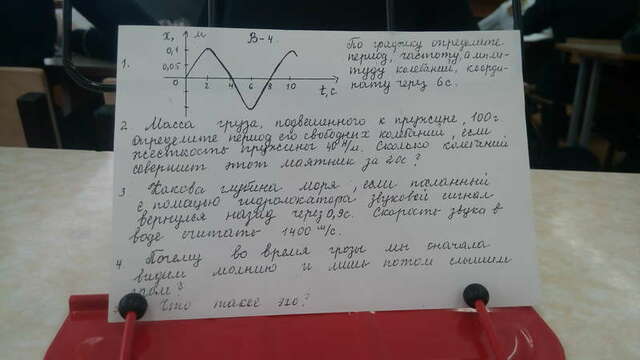 В-4.
x, м
0,1
0,05
0
2 4 6 8 10
t, с
1.
По графику определите
период, частоту, ампли-
туду колебаний, коорди-
нату через 6с.
2 Масса груза, подвешенного к пружине, 100г
определите период его свободных колебаний, если
жесткость пружины 40 Н/м. Сколько колебаний
совершит этот маятник за 20с?
3 Какова глубина моря, если посланный
с помощью гидролокатора звуковой сигнал
вернулся назад через 0,9с. Скорость звука в
воде считать 1400 м/с.
4 Почему во время грозы мы сначала
видим молнию и лишь потом слышим
гром?
Что такое эхо?